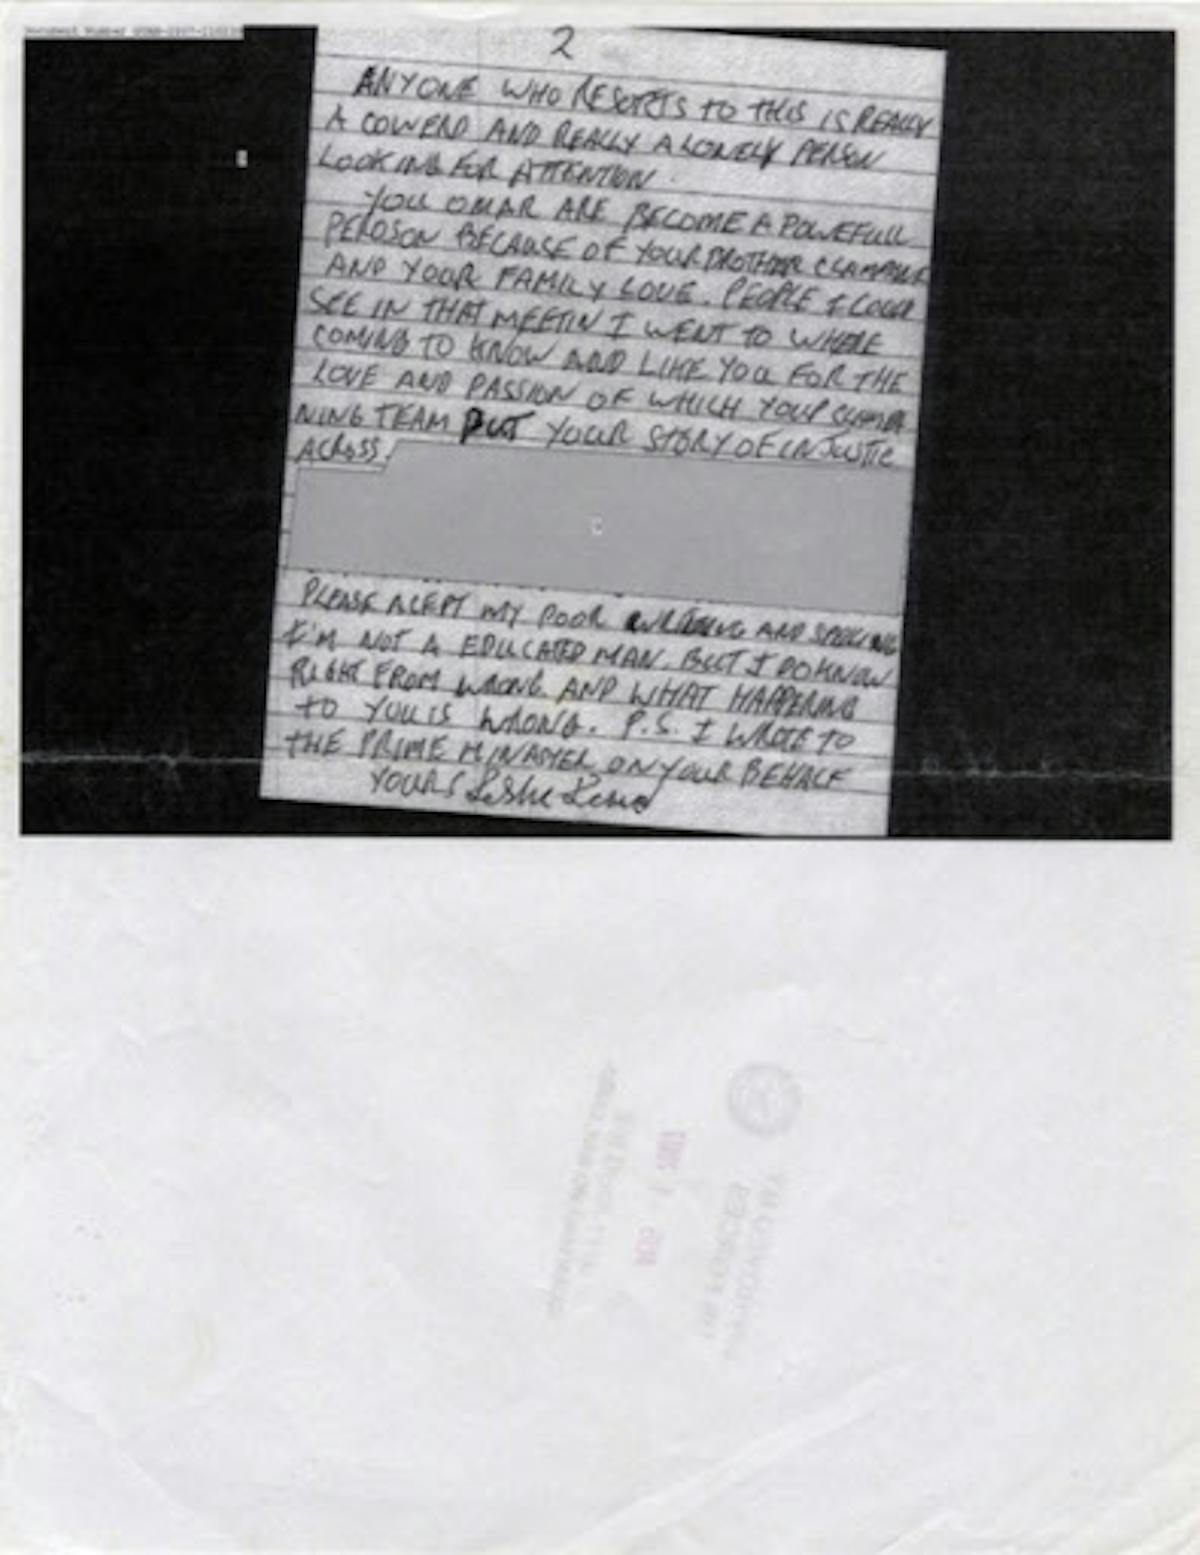 Document Number
2
ANYONE WHO RESORTS TO THIS IS REALLY
A COWERD AND REALLY A LONELY PERSON
LOOKING FOR ATTENTION
YOU OMAR ARE BECOME A POWEFULL
PEROSON BECAUSE OF YOUR BROTHER
AND YOUR FAMILY LOVE. PEOPLE I COULD
SEE IN THAT MEETIN I WENT TO WHERE
COMING TO KNOW AND LIKE YOU FOR THE
LOVE AND PASSION OF WHICH YOUR
NING TEAM PUT YOUR STORY OF INJUSTIC
ACROSS.
C
PLEASE ACEPT MY POOR WRITING AND
I'M NOT A EDUCATED MAN. BUT I DO KNOW
RIGHT FROM WRONG AND WHAT HAPPENING
TO YOU IS WRONG. P.S. I WROTE TO
THE PRIME MINASTER ON YOUR BEHALF
YOURS